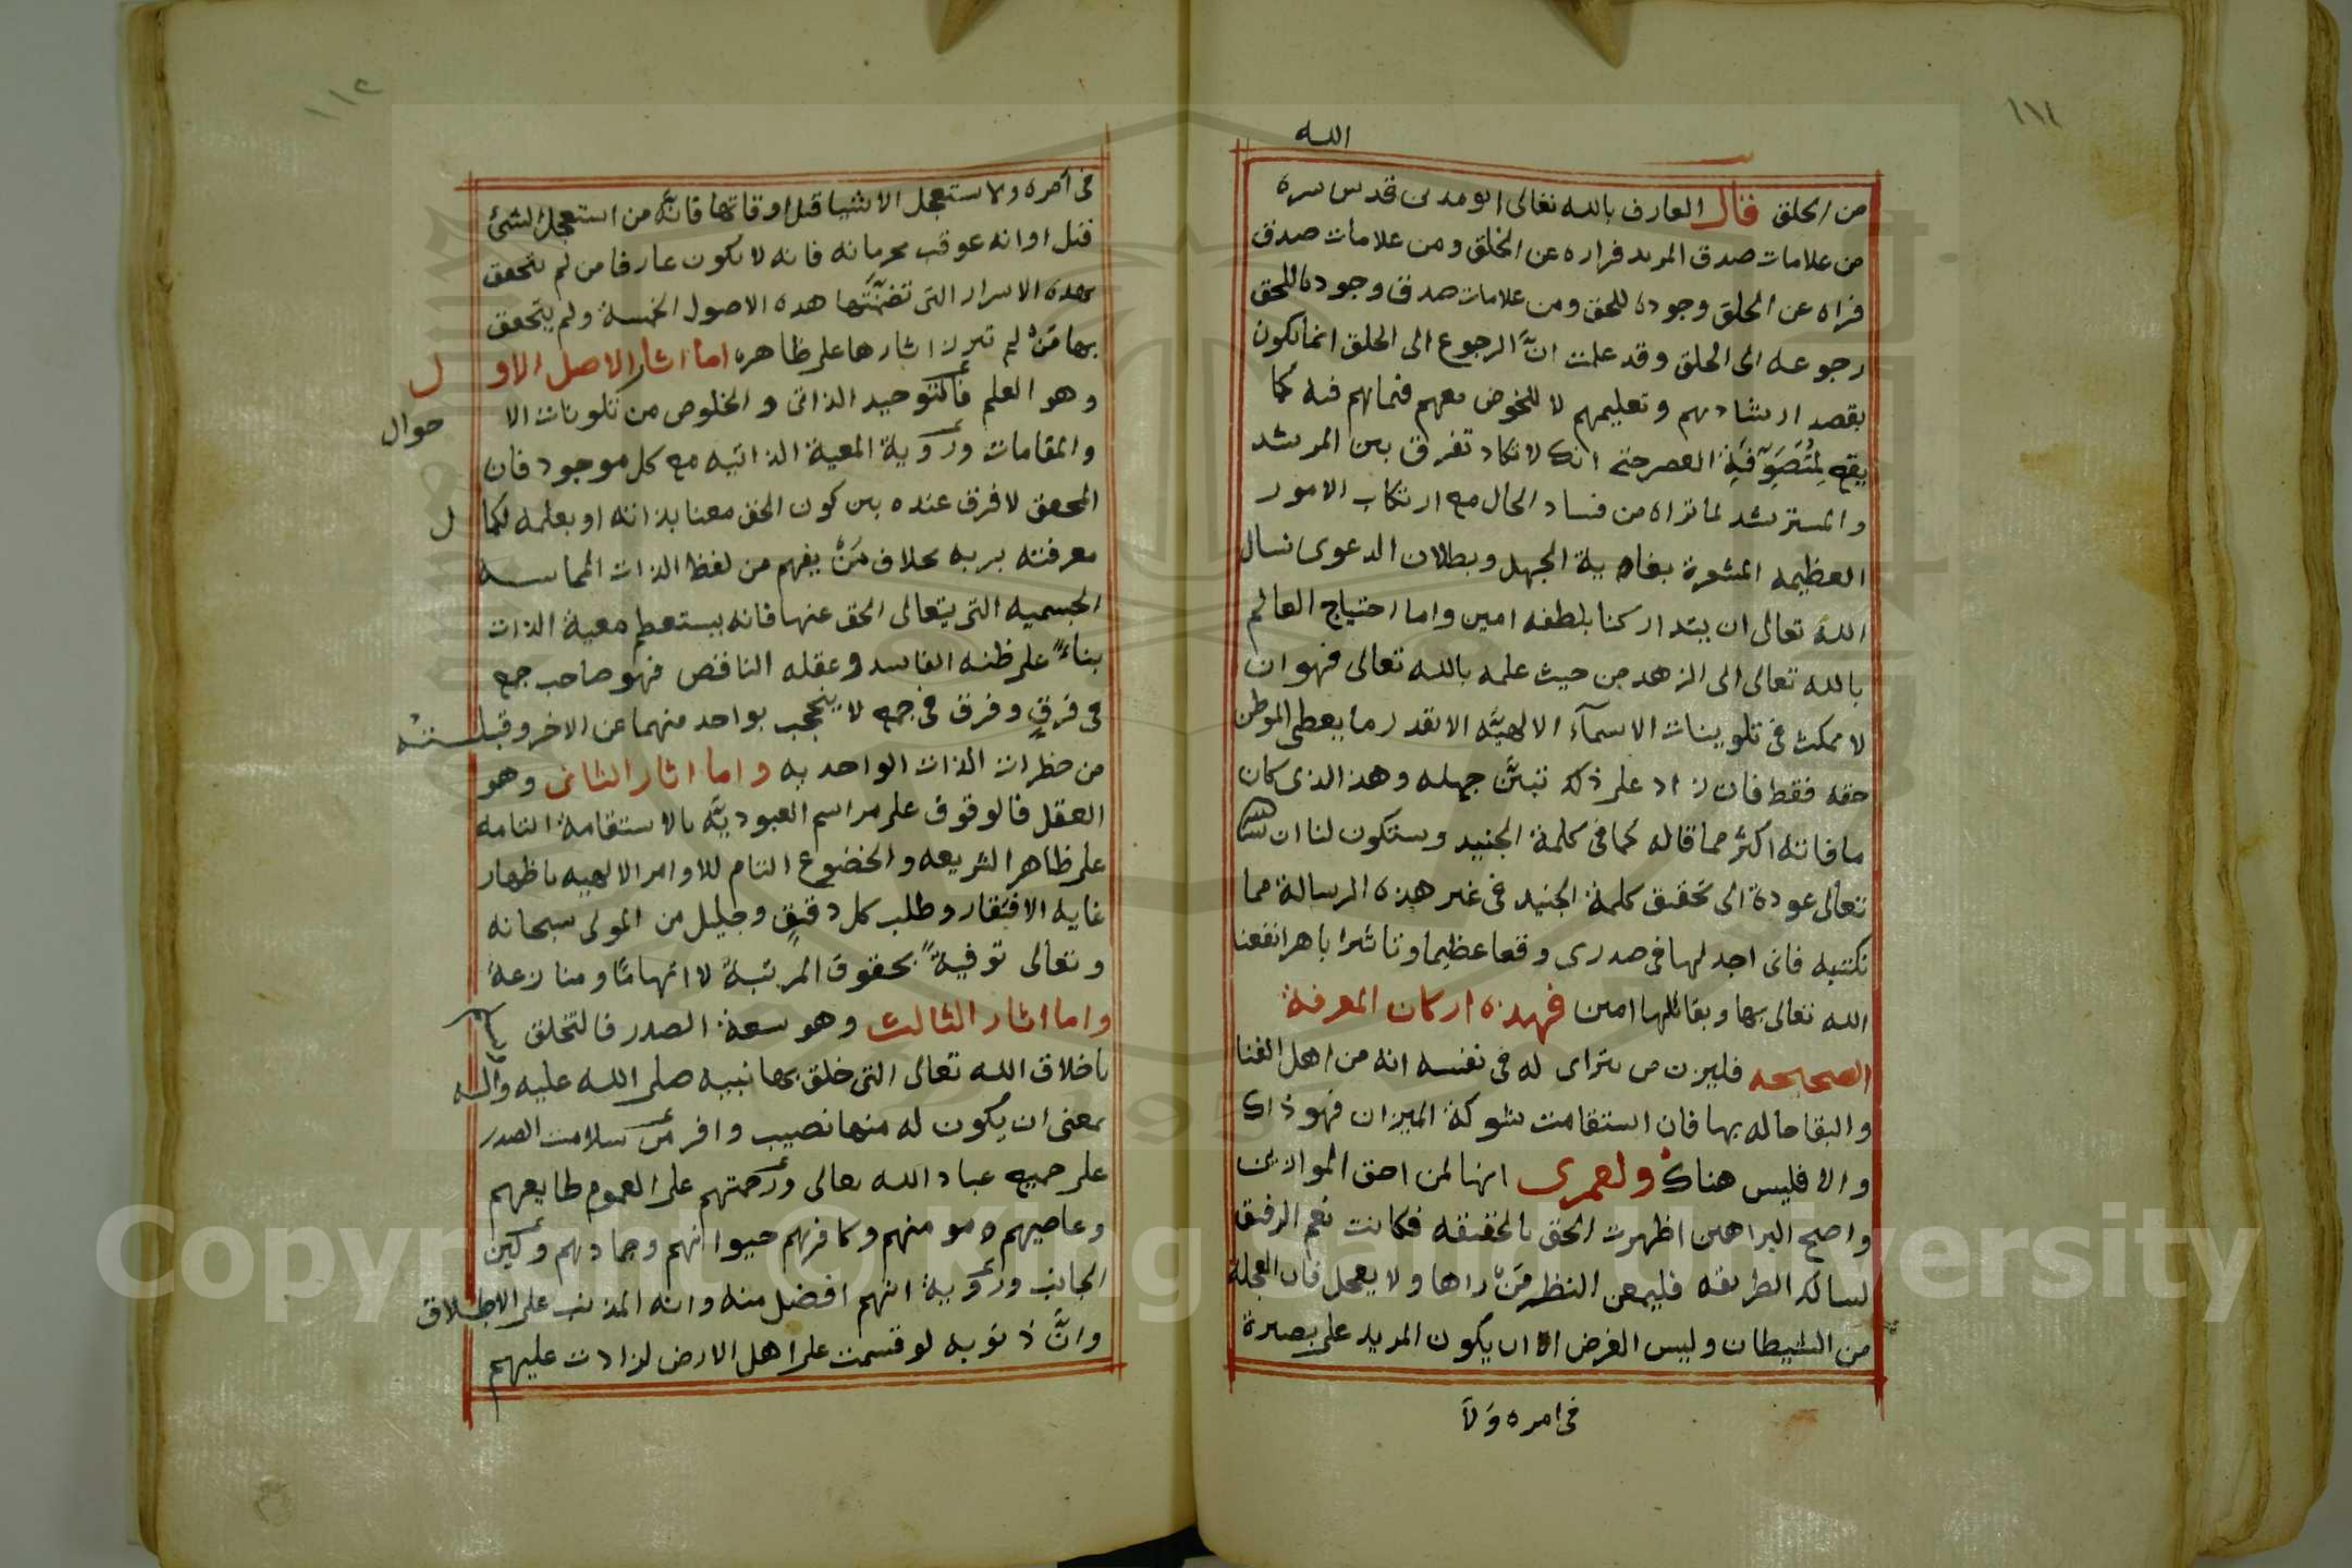 ١١١
الله
من الخلق قال العارف بالله تعالى ابو مدين قدس سره
من علامات صدق المريد فراره عن الخلق ومن علامات صدق
فراه عن الخلق وجوده للحق ومن علامات صدق وجوده للحق
رجوعه الى الخلق وقد علمت انّ الرجوع الى الخلق انما يكون
بقصد ارشادهم وتعليمهم لا للخوض معهم فيما هم فيه كما
يقع لِمُتَصَوِّفَةِ العصر حتى انك لا تكاد تفرق بين المرشد
والمسترشد لما تراه من فساد الحال مع ارتكاب الامور
العظيمه المشعرة بغاية الجهل وبطلان الدعوى نسال
الله تعالى ان يتداركنا بلطفه امين واما احتياج العالم
بالله تعالى الى الزهد من حيث علمه بالله تعالى فهو ان
لا يمكث فى تلوينات الاسمآء الالهيّه الا بقدر ما يعطى الموطن
حقه فقط فان زاد على ذلك تبيّن جهله وهذا الذى كان
ما فاته اكثر مما قاله كما فى كلمة الجنيد وستكون لنا ان شا الله
تعالى عودة الى تحقيق كلمة الجنيد فى غير هذه الرسالة مما
نكتبه فانى اجد لها فى صدرى وقعا عظيما وتاثيرا باهرا نفعنا
الله تعالى بها وبقائلها امين فهذه اركان المعرفة
الصحيحه فليزن من يتراى له فى نفسه انه من اهل الفنا
والبقا حاله بها فان استقامت شوكة الميزان فهو ذاك
والا فليس هناك ولعمرى انها لمن احق الموازين
واصح البراهين اظهرت الحق بالحقيقه فكانت نعم الرفيق
لسالك الطريقه فليمعن النظر مَنْ راها ولا يعجل فان العجلة
من الشيطان وليس الغرض الا ان يكون المريد على بصيرة
فى امره ولا
١١٢
فى امره ولا يستعجل الاشيا قبل اوقاتها فانّه من استعجل الشئ
قبل اوانه عوقب بحرمانه فانه لا يكون عارفا من لم يتحقق
بهذه الاسرار التى تضمّنتها هذه الاصول الخمسة ولم يتحقق
بها مَنْ لم تبرز اثارها على ظاهره اما اثار الاصل الاول
وهو العلم فالتوحيد الذاتى والخلوص من تلوينات الاحوال
والمقامات ورؤية المعية الذاتيه مع كل موجود فان
المحقق لا فرق عنده بين كون الحق معنا بذاته او بعلمه لكمال
معرفته بربه بخلاف مَنْ يفهم من لفظ الذات المماسه
الجسميه التى يتعالى الحق عنها فانه يستعظم معية الذات
بناءً على ظنه الفاسد وعقله الناقص فهو صاحب جمع
فى فرقٍ وفرق فى جمع لا ينحجب بواحد منهما عن الاخر وقبلته
من حظرات الذات الواحديه واما اثار الثانى وهو
العقل فالوقوف على مراسم العبوديّه بالاستقامة التامه
على ظاهر الشريعه والخضوع التام للاوامر الالهيه باظهار
غايه الافتقار وطلب كل دقيقٍ وجليل من المولى سبحانه
وتعالى توفيةً بحقوق المرتبة لا اتهامًا ومنازعة
واما اثار الثالث وهو سعة الصدر فالتخلق
باخلاق الله تعالى التى خلق بها نبيه صلى الله عليه واله
بمعنى ان يكون له منها نصيب وافر من سلامت الصدر
على جميع عباد الله تعالى ورحمتهم على العموم طايعهم
وعاصيهم مومنهم وكافرهم حيوانهم وجمادهم ولين
الجانب ورؤية انهم افضل منه وانه المذنب على الاطلاق
وانّ ذنوبه لو قسمت على اهل الارض لزادت عليهم
Copyright © King Saud University